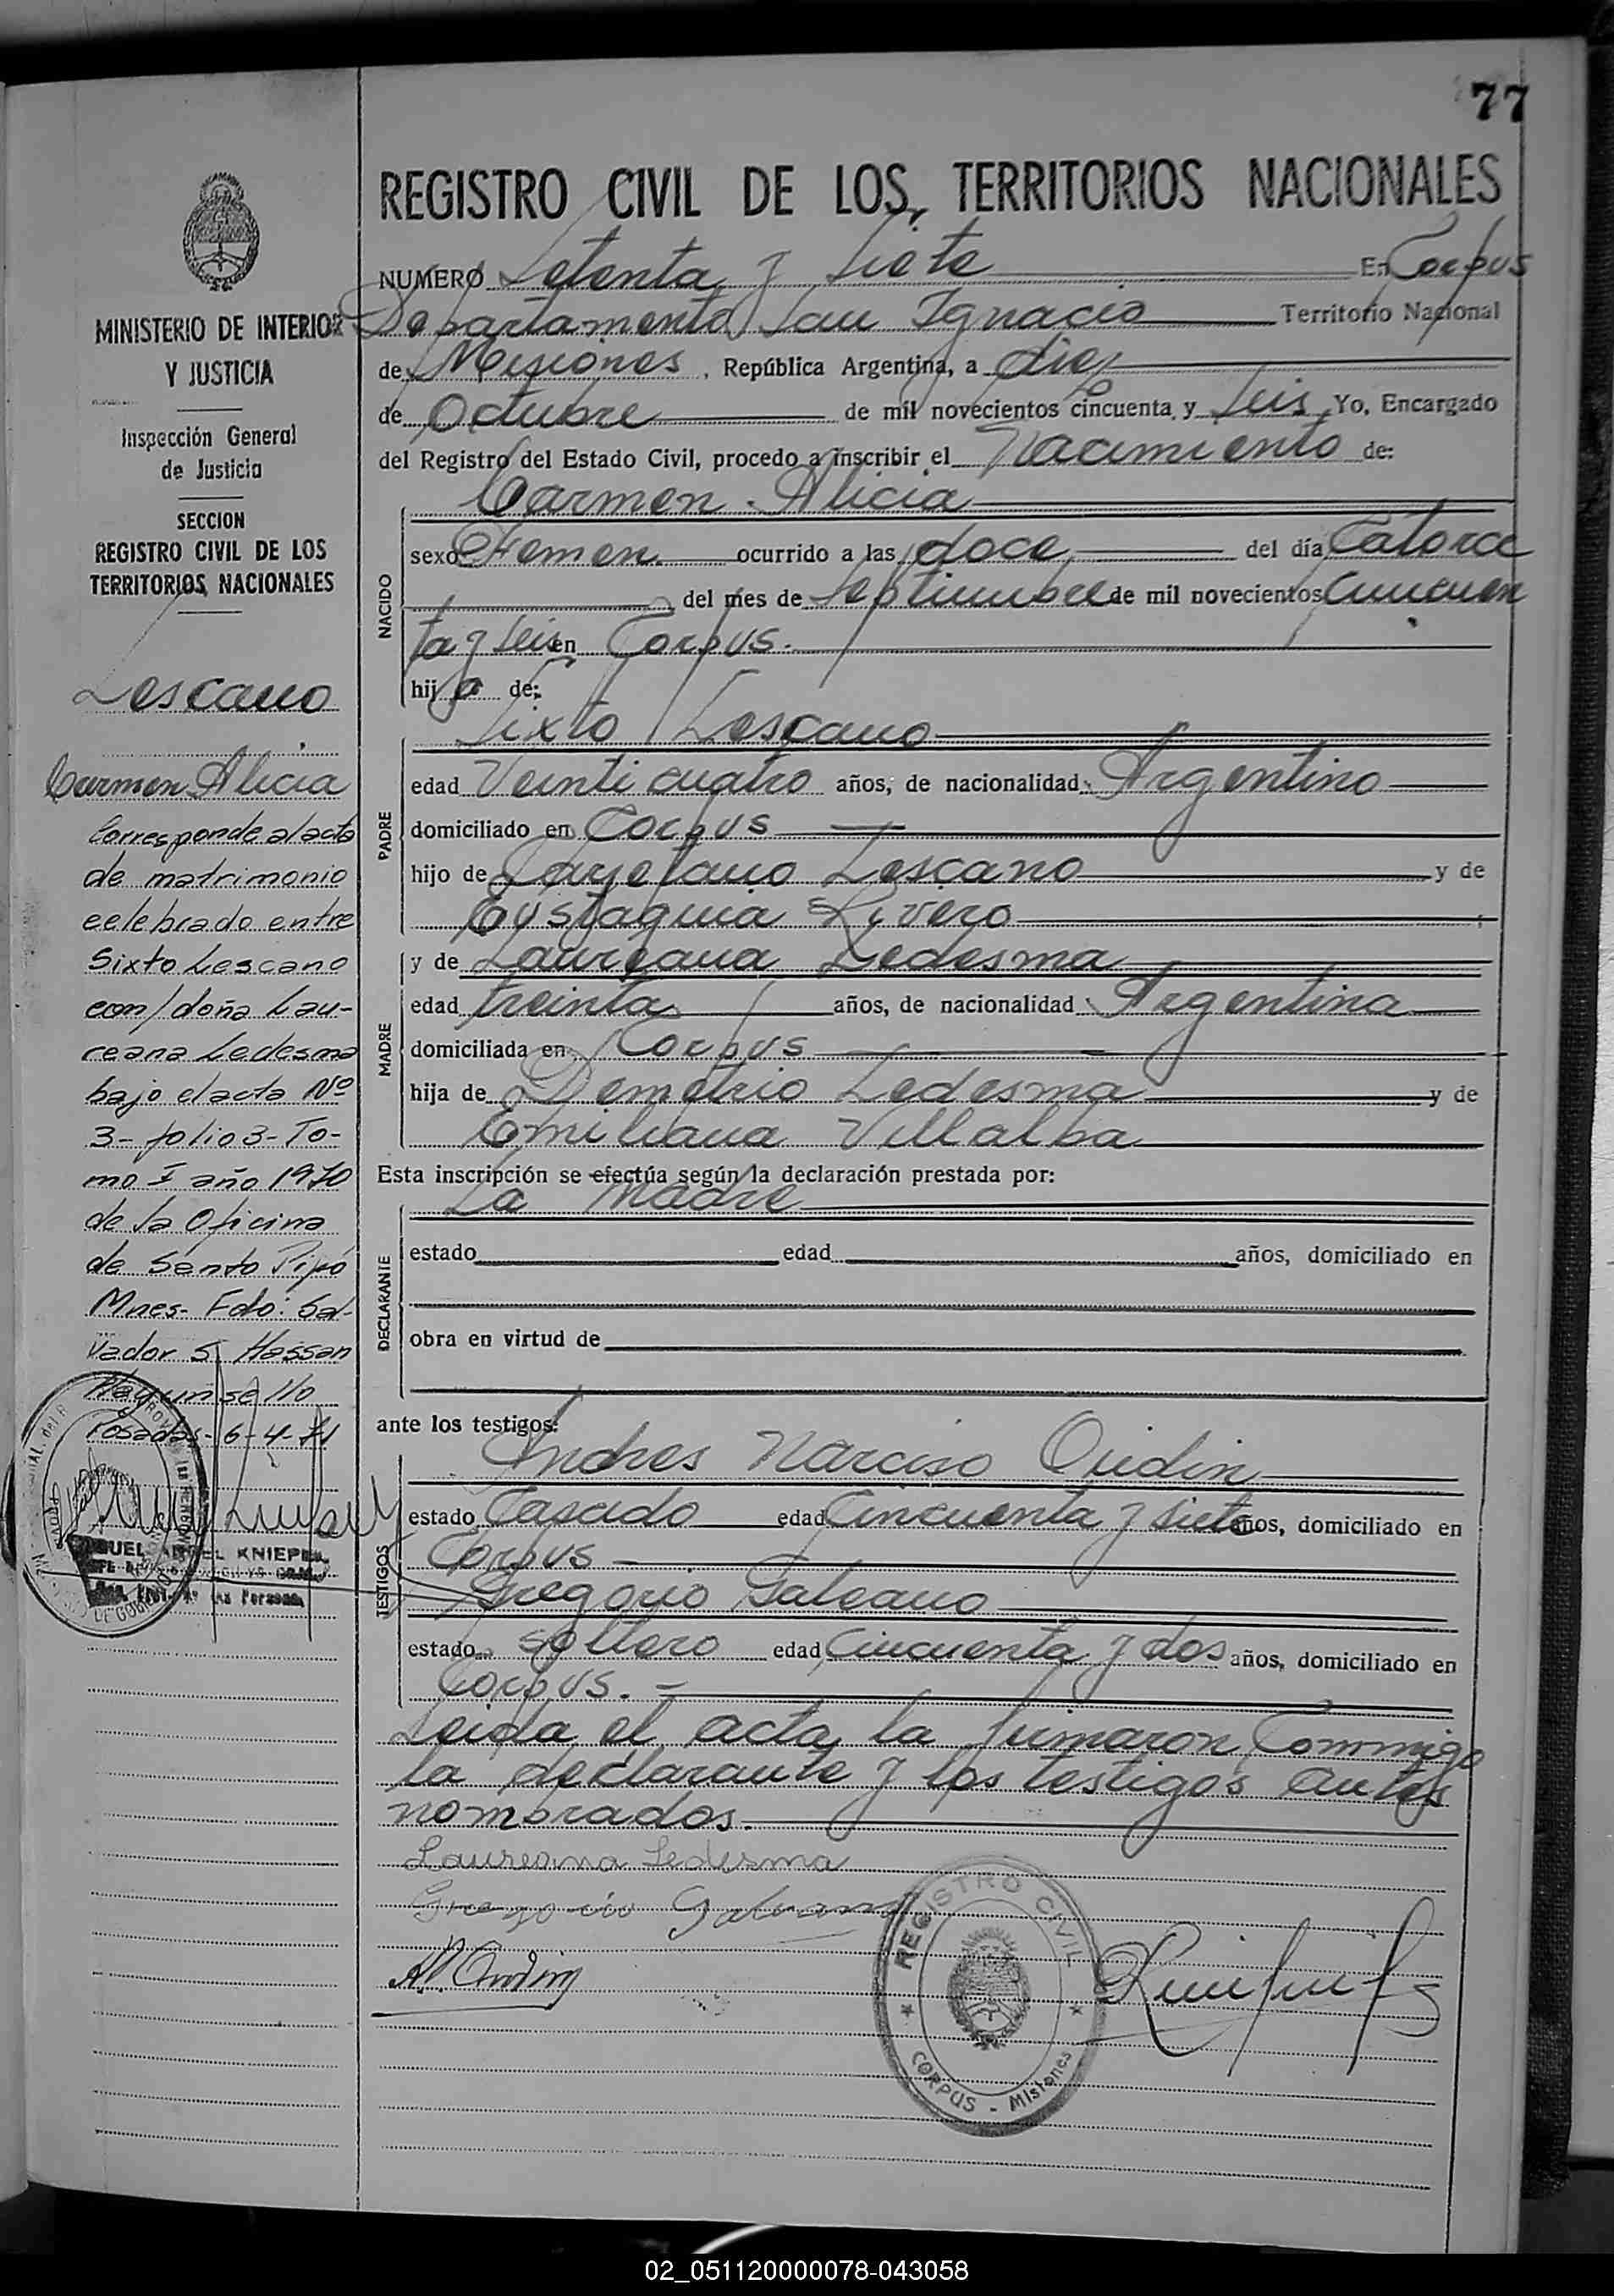 77
MINISTERIO DE INTERIOR
Y JUSTICIA
Inspección General
de Justicia
SECCION
REGISTRO CIVIL DE LOS
TERRITORIOS NACIONALES
Lescano
Carmen Alicia
Corresponde al acta
de matrimonio
celebrado entre
Sixto Lescano
con/doña Lau-
reana Ledesma
bajo el acta Nº
3- folio 3- To-
mo I año 1970
de la Oficina
de Santo Pipó
Mnes- Fdo: Sal-
vador S. Hassan
Hay un sello
Posadas- 6-4-71
KNIEPE
REGISTRO CIVIL DE LOS TERRITORIOS NACIONALES
NUMERO Setenta y Siete En Corpus
Departamento San Ignacio Territorio Nacional
de Misiones, República Argentina, a diez
de Octubre de mil novecientos cincuenta y Seis Yo, Encargado
del Registro del Estado Civil, procedo a inscribir el Nacimiento de:
Carmen Alicia
NACIDO
sexo Femen. ocurrido a las doce del día Catorce
del mes de Septiembre de mil novecientos Cincuen
ta y seis en Corpus.
hija de:
Sixto Lescano
PADRE
edad Veinticuatro años, de nacionalidad Argentino
domiciliado en Corpus
hijo de Cayetano Lescano y de
Eustaquia Rivero
y de Laureana Ledesma
MADRE
edad treinta años, de nacionalidad Argentina
domiciliada en Corpus
hija de Demetrio Ledesma y de
Emiliana Villalba
Esta inscripción se efectúa según la declaración prestada por:
La Madre
DECLARANTE
estado edad años, domiciliado en
obra en virtud de
ante los testigos:
Andres Narciso Oudin
TESTIGOS
estado Casado edad Cincuenta y siete años, domiciliado en
Corpus -
Gregorio Galeano
estado soltero edad Cincuenta y dos años, domiciliado en
Corpus. -
Leida el acta la firmaron Conmigo
la declarante y los testigos antes
nombrados.
Laureana Ledesma
Gregorio Galeano
REGISTRO CIVIL
CORPUS - Misiones
02_051120000078-043058